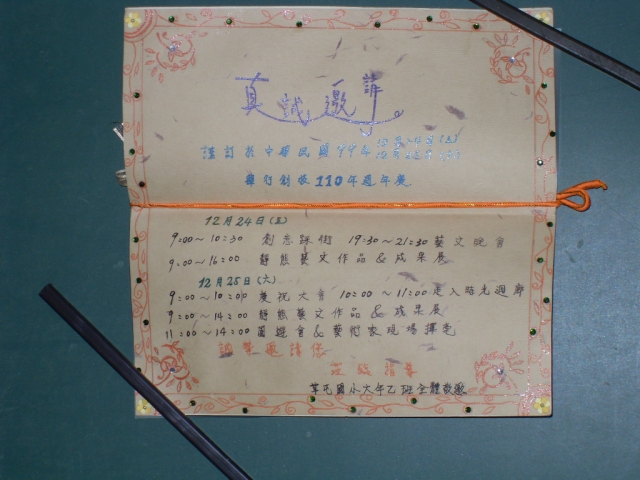 真誠邀請
謹訂於中華民國99年12月24日(五)
12月25日(六)
舉行創校110年週年慶
12月24日(五)
9:00~10:30 創意踩街 19:30~21:30藝文晚會
9:00~16:00 靜態藝文作品&成果展
12月25日(六)
9:00~10:00慶祝大會 10:00~11:00走入時光迴廊
9:00~14:00靜態藝文作品&成果展
11:00~14:00園遊會&藝術家現場揮毫
誠摯邀請您
蒞臨指導
草屯國小六年乙班全體敬邀